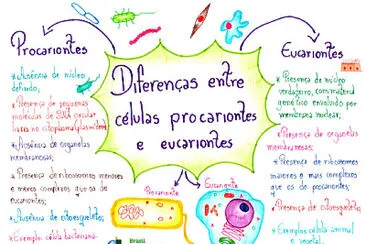 Procariontes
* Ausência de núcleo
definido;
* Presença de pequenas
moléculas de DNA circular
* Ausência de organelas
membranosas;
* Presença de ribossomos menores
e menos complexos que os de
eucariontes;
* Ausência de citoesqueleto;
* Exemplo: célula bacteriana.
Diferenças entre
células procariontes
e eucariontes
Procarionte
Eucarionte
Brasil
Eucariontes
* Presença de núcleo
verdadeiro, com material
genético envolvido por
membrana nuclear;
* Presença de organelas
membranosas;
* Presença de ribossomos
maiores e mais complexos
que os de procariontes;
* Presença de citoesqueleto
* Exemplos: célula animal
e vegetal.